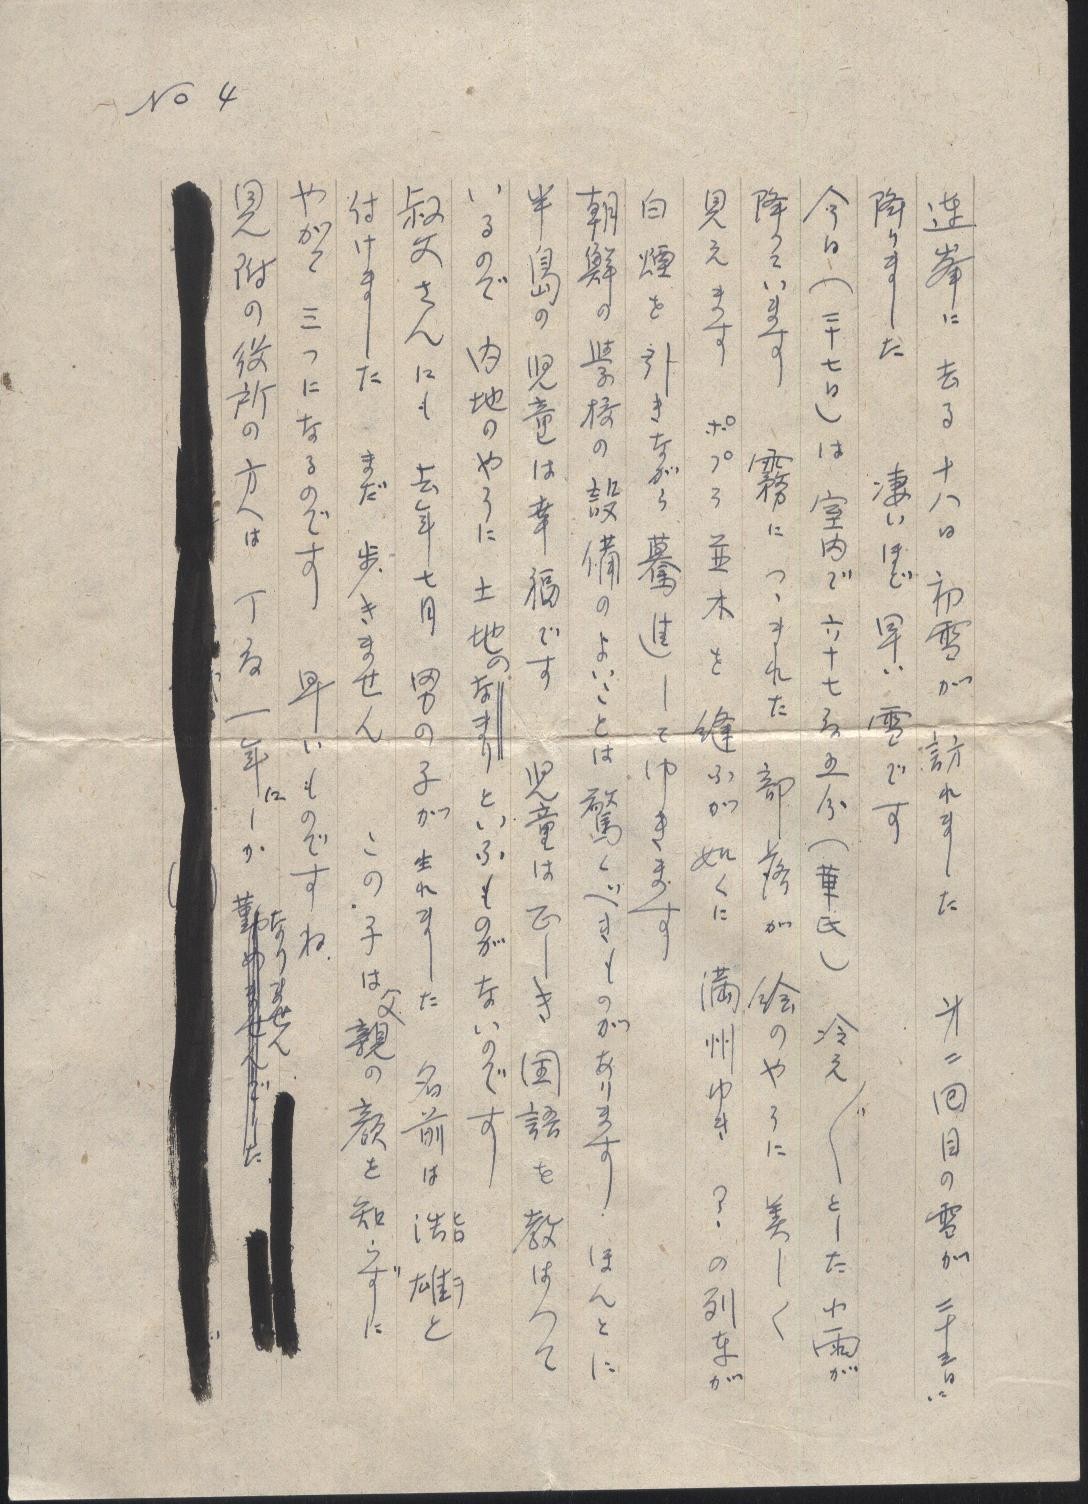 No 4
連峯に 去る 十八日 初雪が 訪れました 才二回目の雪が 二十五日に
降りました 凄いほど 早い 雪です
今日(二十七日)は 室内で 六十七度五分(華氏) 冷え/″\とした 小雨が
降っています 霧に つゝまれた 部落が 絵のやうに 美しく
見えます ポプラ 並木を 縫ふが 如くに 満州ゆき の列車が
白煙を 引きながら 驀進してゆきます
朝鮮の 学校の 設備の よいことは 驚くべきものがあります ほんとに
半島の 児童は 幸福です 児童は 正しき 国語を 教はつて
いるので 内地のやうに 土地のなまりといふものがないのです
叔父さんにも 去年七月 男の子が 生れました 名前は 浩雄と
付けました まだ 歩きません この子は 父親の 顔を 知らずに
やがて 三つになるのです 早いものですね
見附の役所の方へは 丁度 一年にしか なりません
勤めませんでした